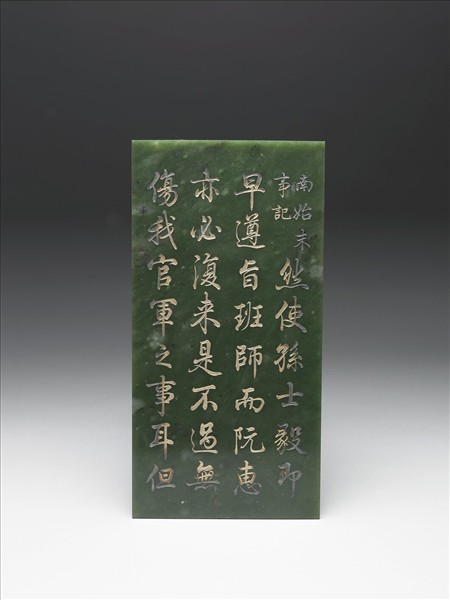 南始末
事記
然使孫士毅即
早遵旨班師而阮恵
亦必復来是不過無
傷我官軍之事耳但